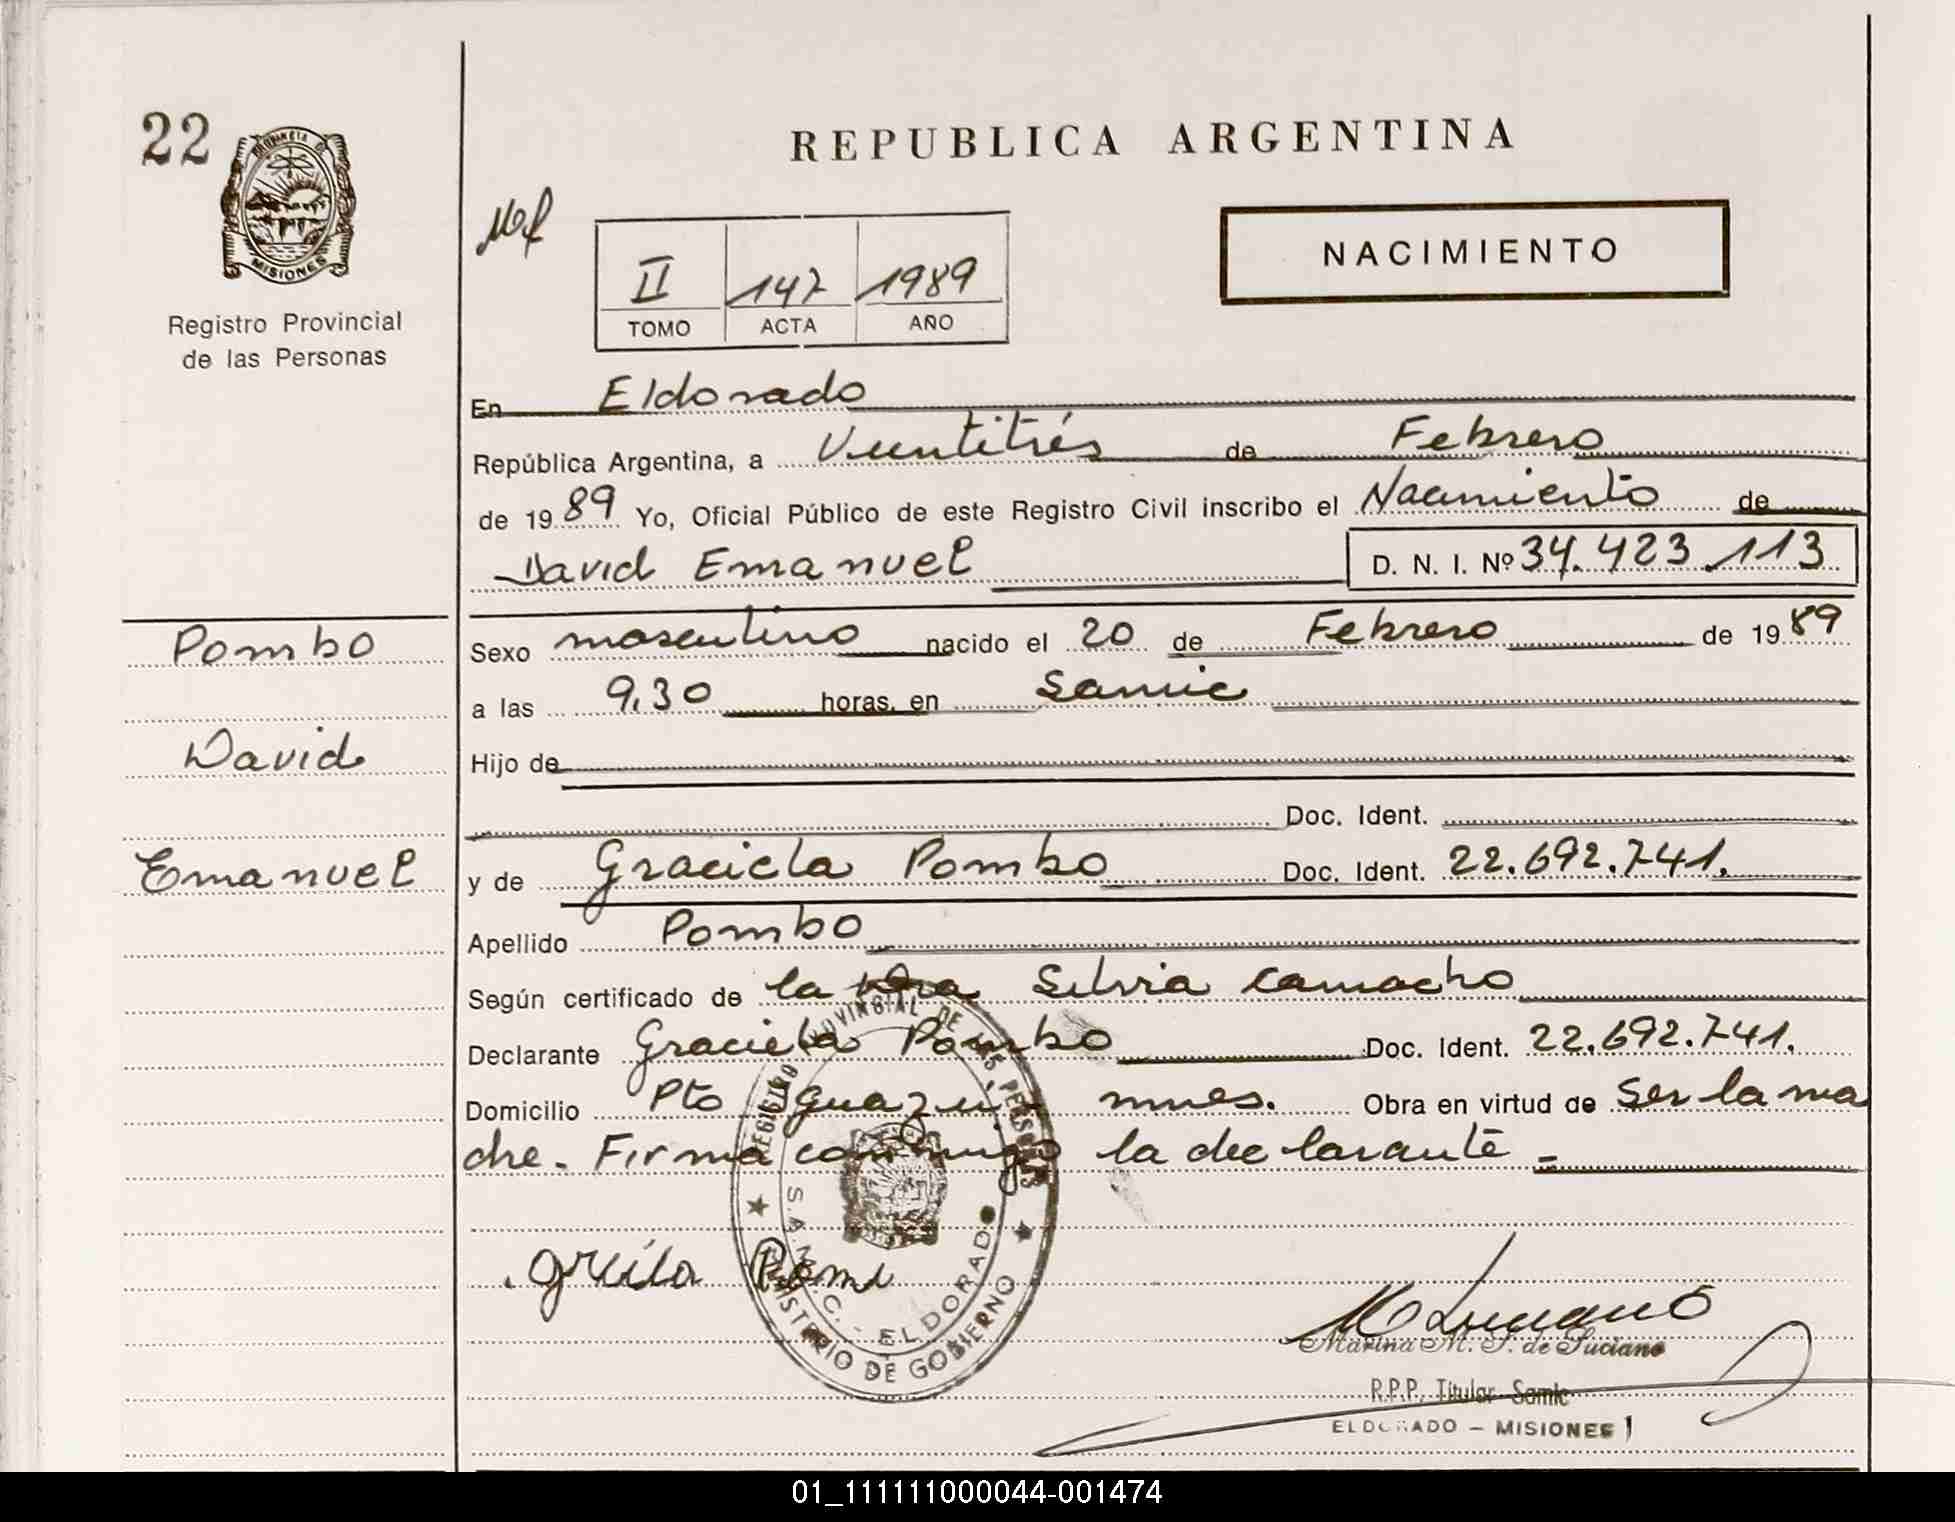 22
PROVINCIA DE
MISIONES
Registro Provincial
de las Personas
REPUBLICA ARGENTINA
II 147 1989
TOMO ACTA AÑO
NACIMIENTO
En Eldorado
República Argentina, a Veintitrés de Febrero
de 1989 Yo, Oficial Público de este Registro Civil inscribo el Nacimiento de
David Emanuel D. N. I. Nº 34.423.113
Pombo
David
Emanuel
Sexo masculino nacido el 20 de Febrero de 1989
a las 9,30 horas, en Samic
Hijo de
Doc. Ident.
y de Graciela Pombo Doc. Ident. 22.692.741.
Apellido Pombo
Según certificado de la Dra Silvia Camacho
Declarante Graciela Pombo Doc. Ident. 22.692.741.
Domicilio Pto Iguazú mnes. Obra en virtud de Ser la ma
dre. Firma conmigo la declarante -
REGISTRO PROVINCIAL DE LAS PERSONAS
S.A.M.I.C. - ELDORADO
MINISTERIO DE GOBIERNO
M Luciano
Marina M. S. de Luciano
R.P.P. Titular Samic
ELDORADO - MISIONES
01_111111000044-001474